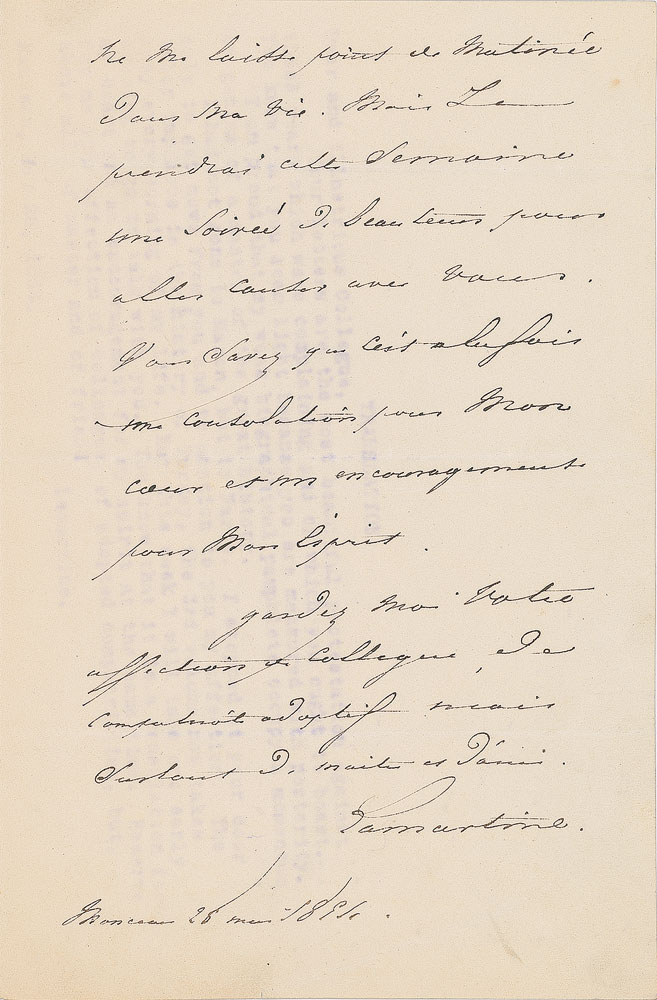 ne me laisse point de Matinée
Dans Ma Vie. Mais Je
prendrai cette Semaine
une Soirée De beau tems pour
aller causer avec vous.
Vous Savez que c'est à la fois
une consolation pour Mon
cœur et un encouragement
pour Mon Esprit.
gardez moi Votre
affection de Collegue, De
compatriote adoptif mais
Surtout De maitre et D'ami.
Lamartine.
Monceau 26